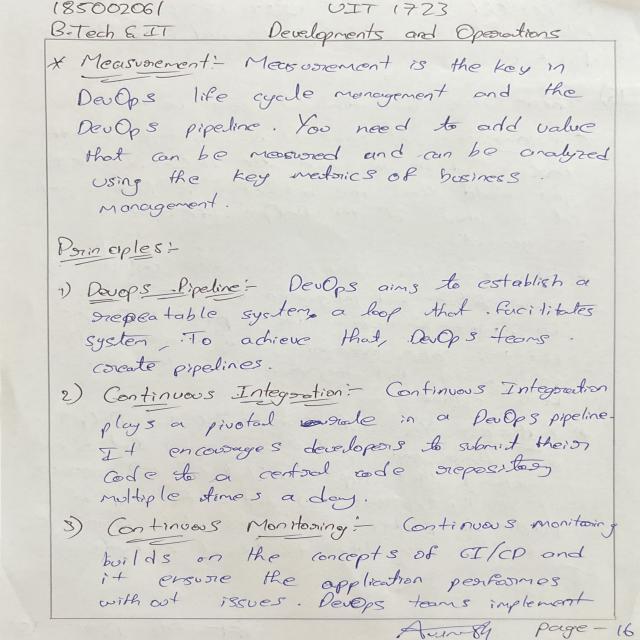 185002061 UIT 1723
B.Tech & IT Developments and Operations
* Measurement:- Measurement is the key in
DevOps life cycle management and the
DevOps pipeline. You need to add value
that can be measured and can be analyzed
using the key metrics of business
management.
Principles:-
1) Devops Pipeline:- DevOps aims to establish a
repeatable system, a loop that facilitates
system, To achieve that, DevOps teams
create pipelines.
2) Continuous Integration:- Continuous Integration
plays a pivotal role in a DevOps pipeline.
It encourages developers to submit their
code to a central code repository
multiple times a day.
3) Continuous Monitoring:- Continuous monitoring
builds on the concepts of CI/CD and
it ensure the application performes
with out issues. DevOps teams implement
page - 16